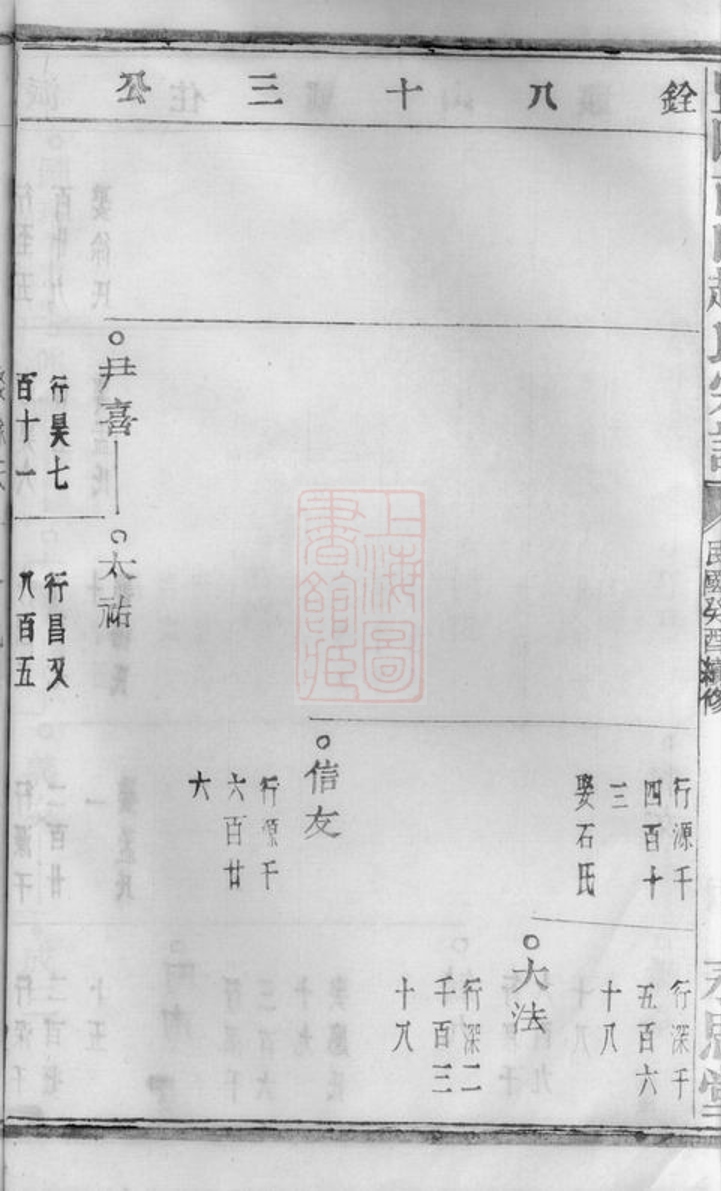 銓八十三公
趙氏宗譜
民國癸酉續修
行源千
四百十
三
娶石氏
行深千
五百六
十八
大法
行深二
千百三
十八
信友
行源千
六百廿
六
尹喜
太祐
行昊七
百十一
行昌又
八百五
上海圖
書館藏